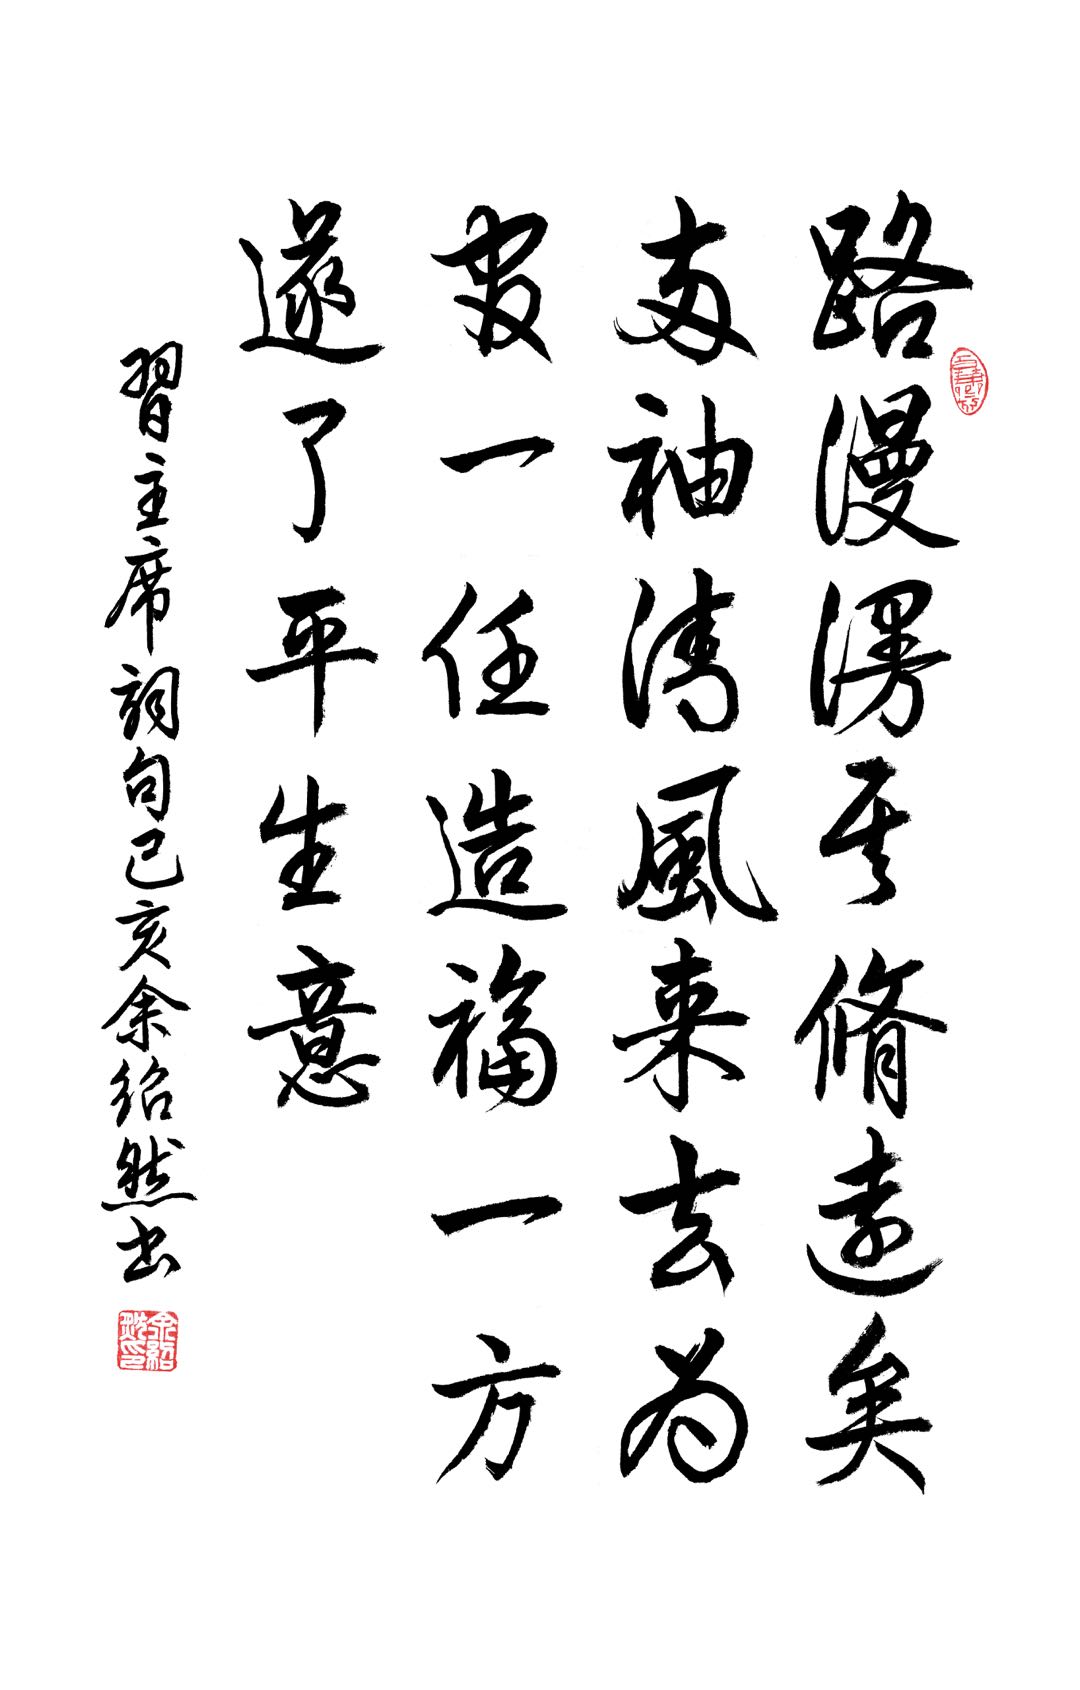 路漫漫其脩遠矣
両袖清風来去为
官一任造福一方
遂了平生意
習主席詞句己亥余绍然书
余紹然印